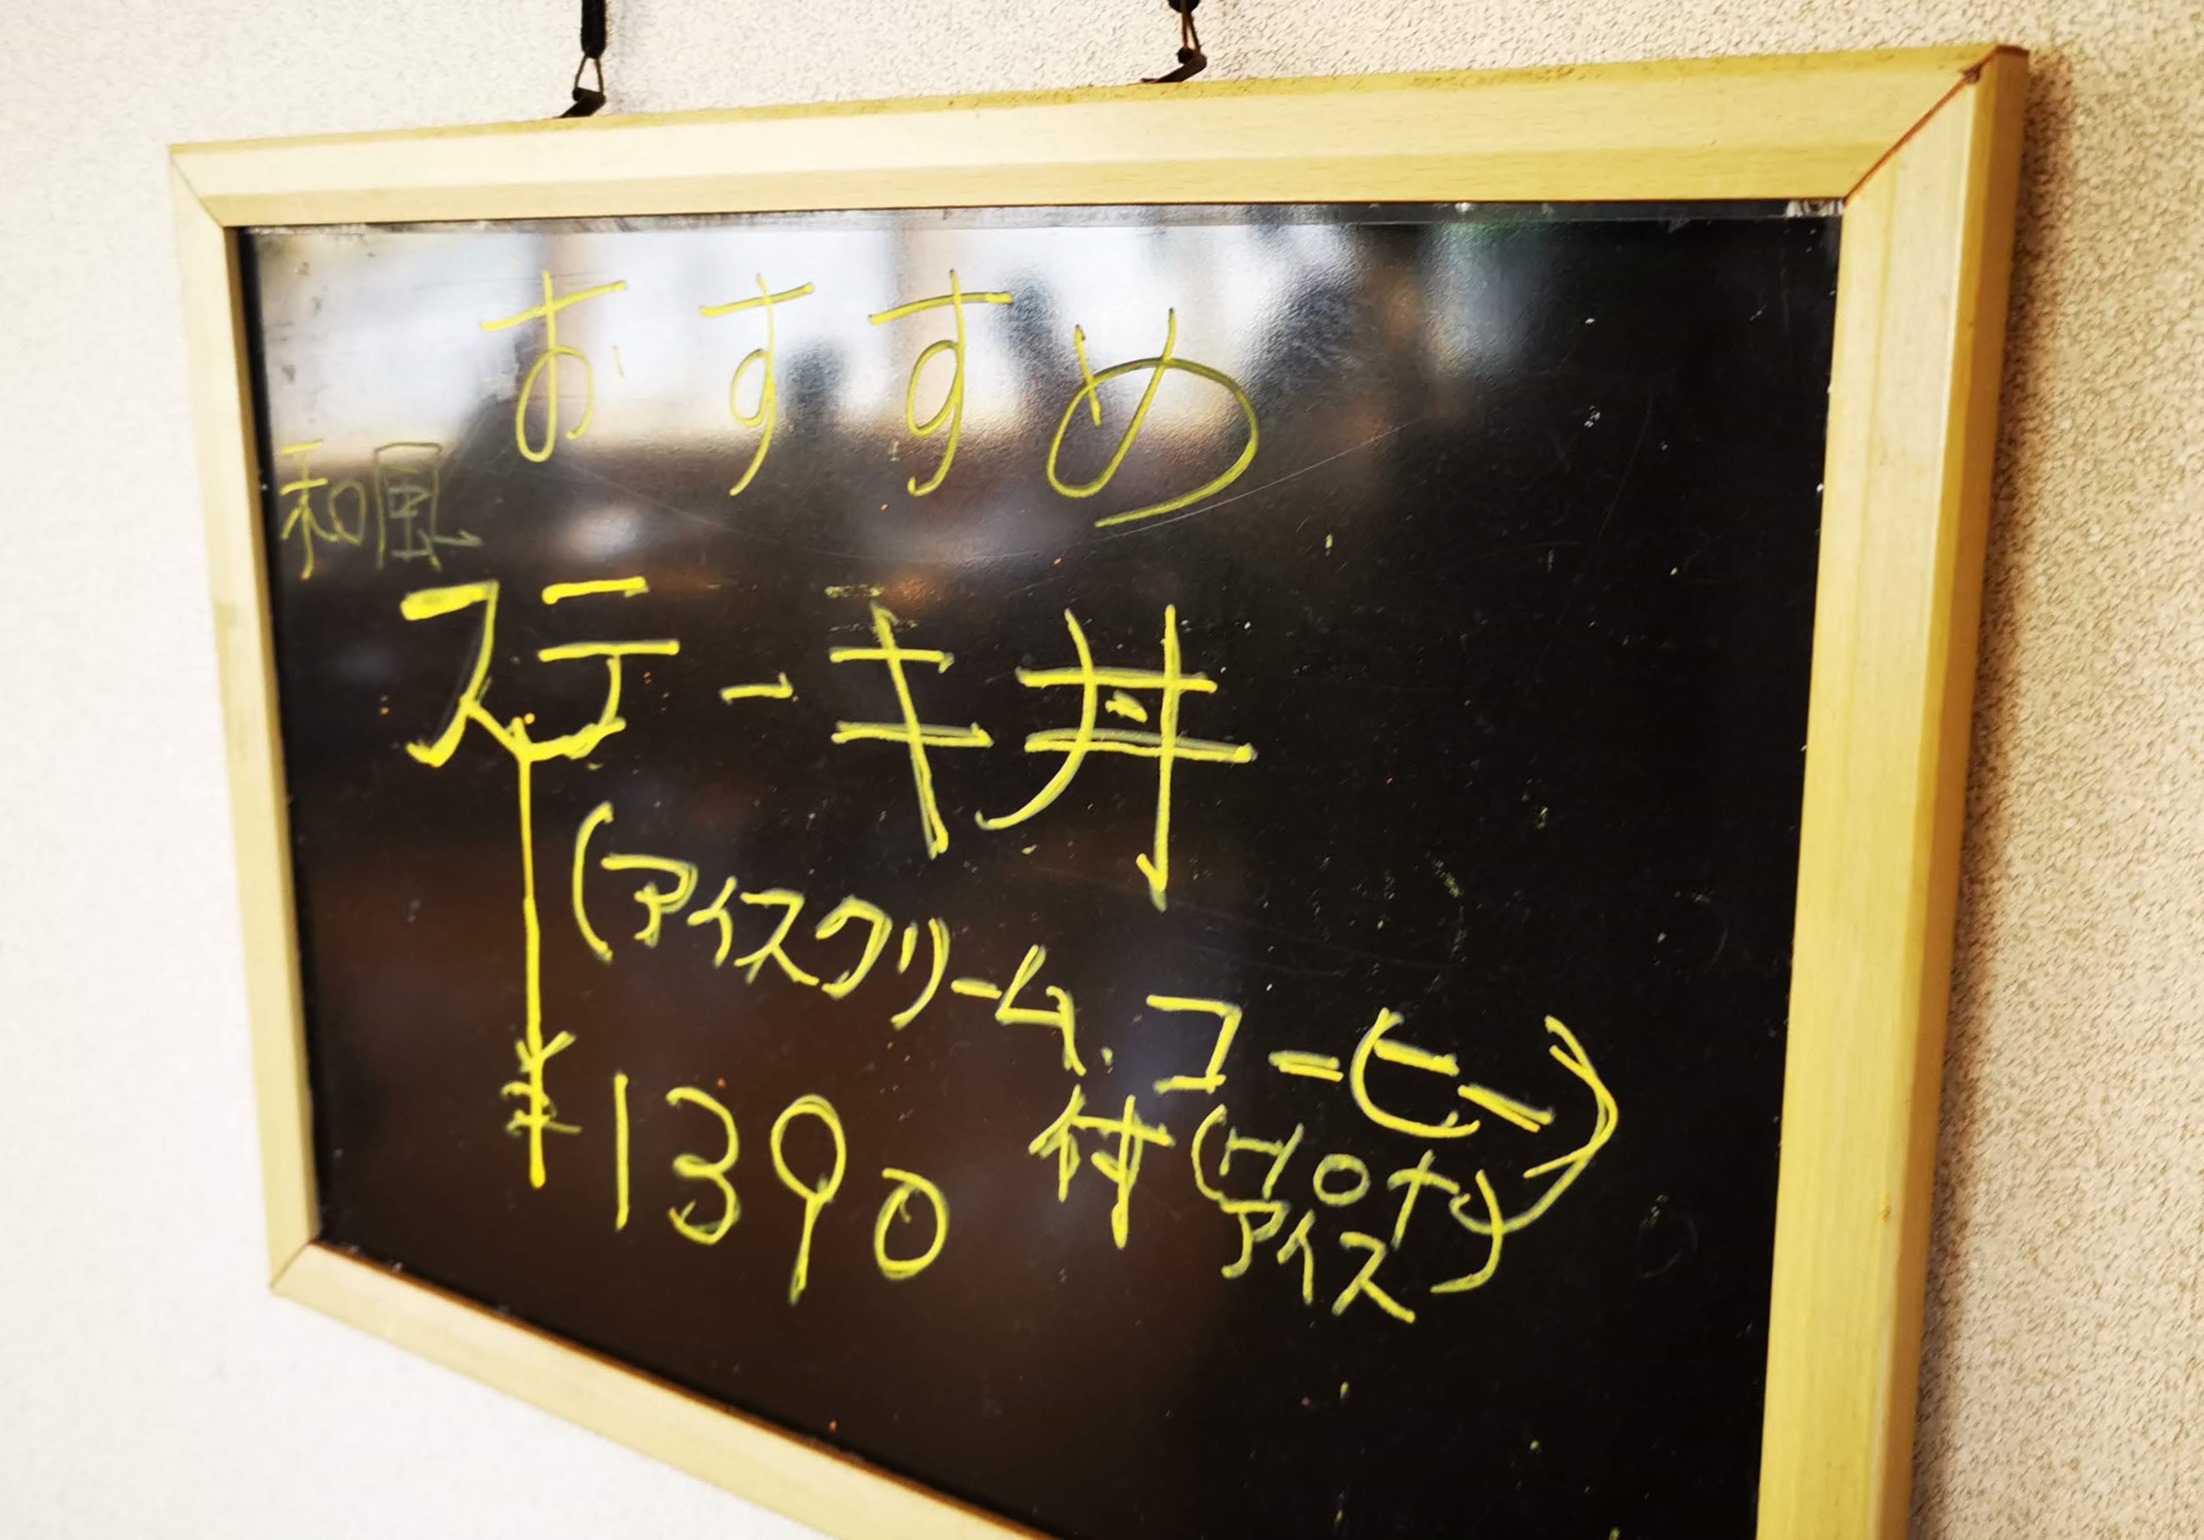 おすすめ
和風
ステーキ丼
(アイスクリーム、コーヒー)
¥1390 付(Hotか
アイス)